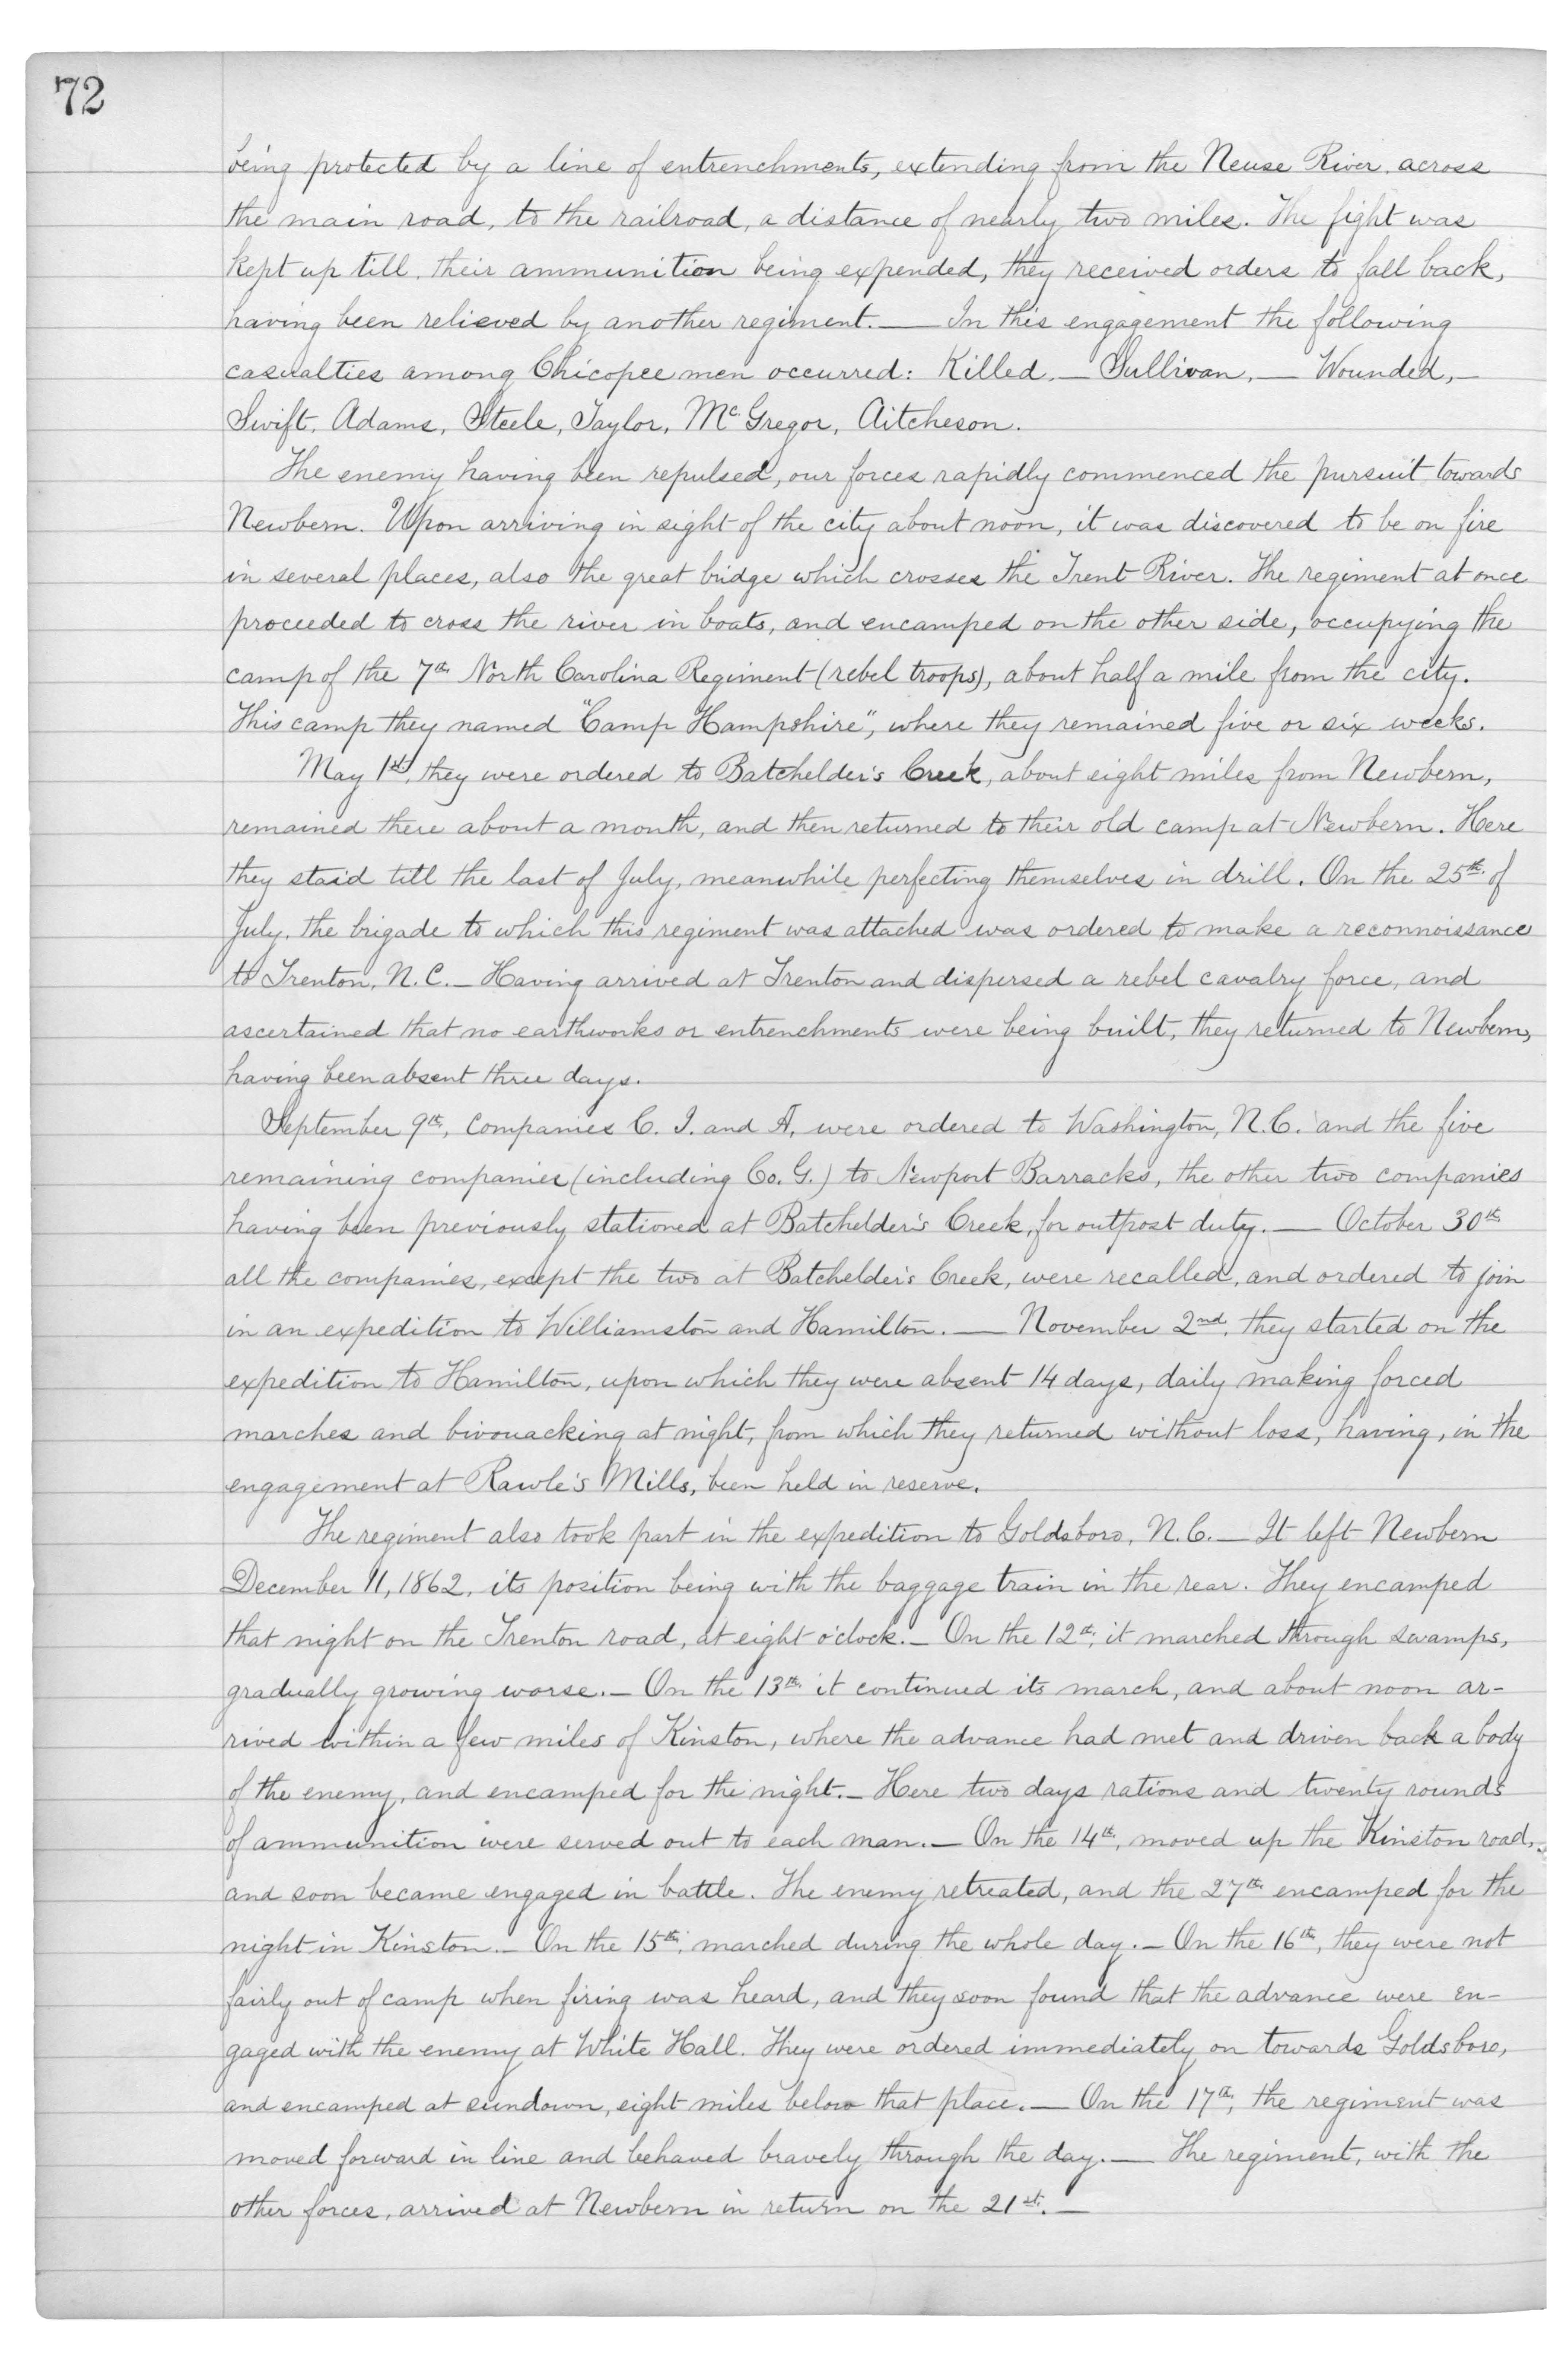 72
being protected by a line of entrenchments, extending from the Neuse River across
the main road, to the railroad, a distance of nearly two miles. The fight was
kept up till, their ammunition being expended, they received orders to fall back,
having been relieved by another regiment. — In this engagement the following
casualties among Chicopee men occurred: Killed, — Sullivan, — Wounded, —
Swift, Adams, Steele, Taylor, McGregor, Aitcheson.
The enemy having been repulsed, our forces rapidly commenced the pursuit towards
Newbern. Upon arriving in sight of the city about noon, it was discovered to be on fire
in several places, also the great bridge which crosses the Trent River. The regiment at once
proceeded to cross the river in boats, and encamped on the other side, occupying the
camp of the 7th North Carolina Regiment (rebel troops), about half a mile from the city.
This camp they named "Camp Hampshire", where they remained five or six weeks.
May 1st, they were ordered to Batchelder's Creek, about eight miles from Newbern,
remained there about a month, and then returned to their old camp at Newbern. Here
they staid till the last of July, meanwhile perfecting themselves in drill. On the 25th of
July, the brigade to which this regiment was attached was ordered to make a reconnoissance
to Trenton, N.C. — Having arrived at Trenton and dispersed a rebel cavalry force, and
ascertained that no earthworks or entrenchments were being built, they returned to Newbern,
having been absent three days.
September 9th, Companies C. I. and A, were ordered to Washington, N.C. and the five
remaining companies (including Co. G.) to Newport Barracks, the other two companies
having been previously stationed at Batchelder's Creek, for outpost duty. — October 30th
all the companies, except the two at Batchelder's Creek, were recalled, and ordered to join
in an expedition to Williamston and Hamilton. — November 2nd, they started on the
expedition to Hamilton, upon which they were absent 14 days, daily making forced
marches and bivouacking at night, from which they returned without loss, having, in the
engagement at Rawle's Mills, been held in reserve.
The regiment also took part in the expedition to Goldsboro, N.C. — It left Newbern
December 11, 1862, its position being with the baggage train in the rear. They encamped
that night on the Trenton road, at eight o'clock. — On the 12th, it marched through swamps,
gradually growing worse. — On the 13th it continued its march, and about noon ar-
rived within a few miles of Kinston, where the advance had met and driven back a body
of the enemy, and encamped for the night. — Here two days rations and twenty rounds
of ammunition were served out to each man. — On the 14th, moved up the Kinston road,
and soon became engaged in battle. The enemy retreated, and the 27th encamped for the
night in Kinston. — On the 15th, marched during the whole day. — On the 16th, they were not
fairly out of camp when firing was heard, and they soon found that the advance were en-
gaged with the enemy at White Hall. They were ordered immediately on towards Goldsboro,
and encamped at sundown, eight miles below that place. — On the 17th, the regiment was
moved forward in line and behaved bravely through the day. — The regiment, with the
other forces, arrived at Newbern in return on the 21st. —